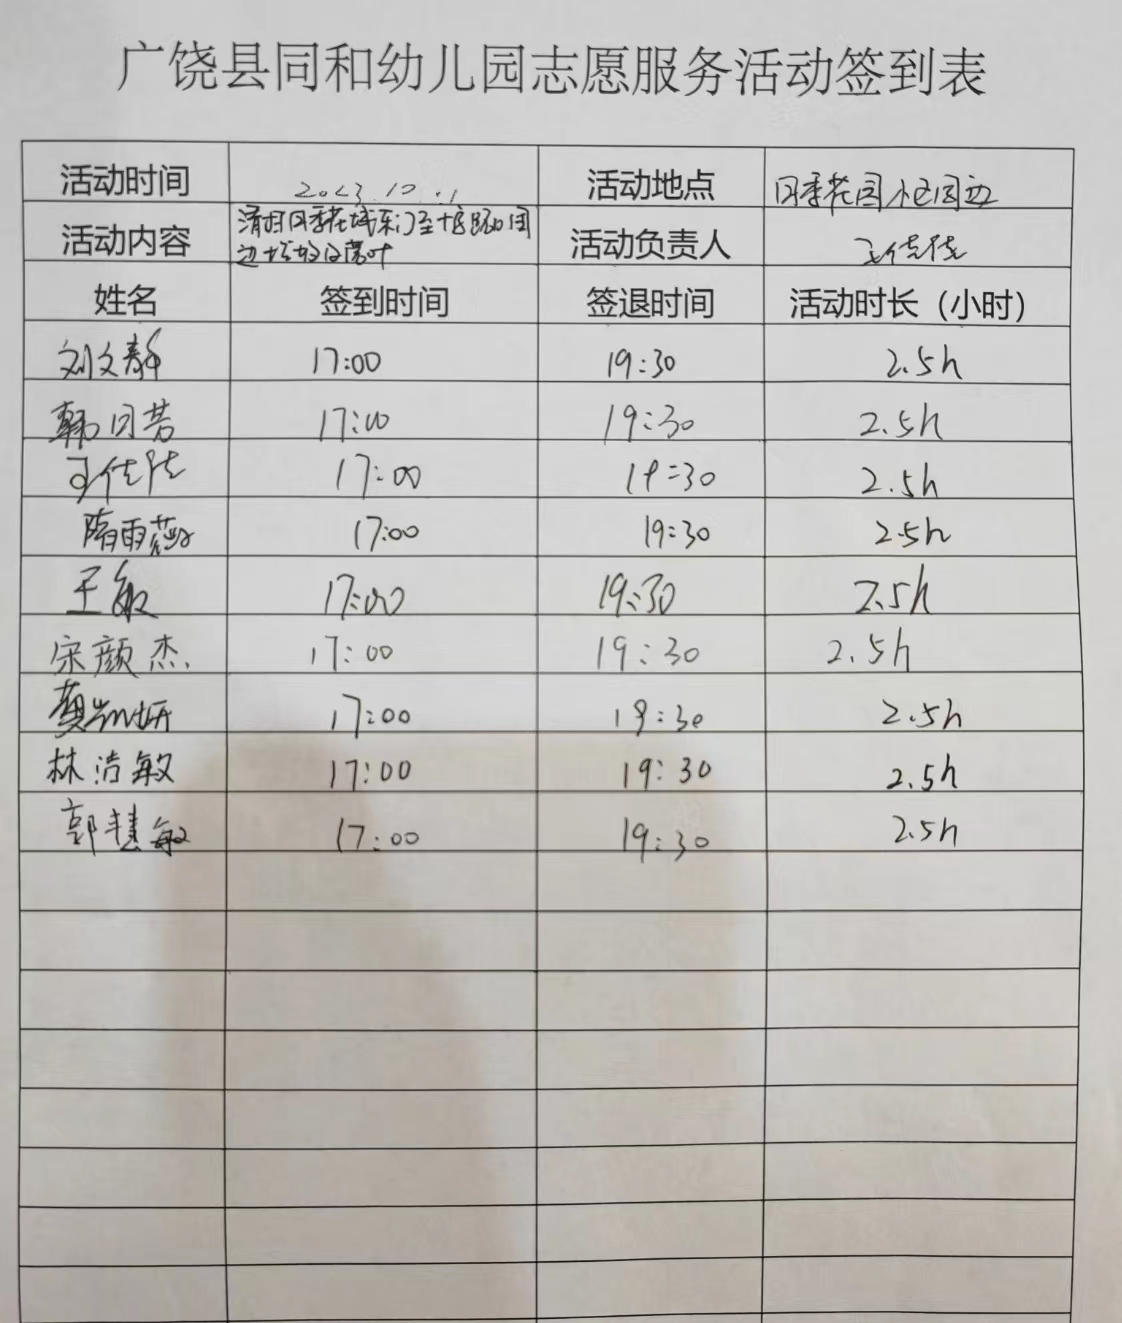 广饶县同和幼儿园志愿服务活动签到表
活动时间 2023.12.1 活动地点 四季花园小区周边
活动内容 清扫四季花城东门至十 路口周 活动负责人 王佳陆
边垃圾及落叶
姓名 签到时间 签退时间 活动时长（小时）
刘文静 17:00 19:30 2.5h
韩 芳 17:00 19:30 2.5h
王佳陆 17:00 19:30 2.5h
隋雨燕 17:00 19:30 2.5h
王敏 17:00 19:30 2.5h
宋颜杰 17:00 19:30 2.5h
妍 17:00 19:30 2.5h
林洁敏 17:00 19:30 2.5h
郭慧敏 17:00 19:30 2.5h